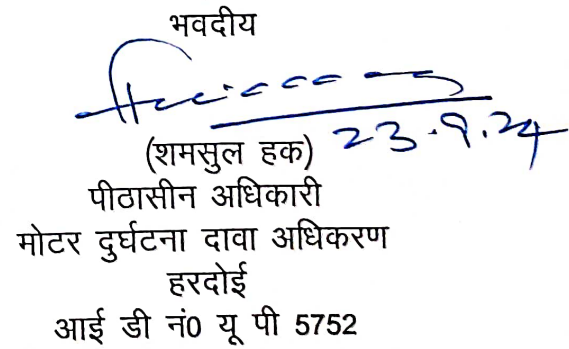 भवदीय
23.9.24
(शमसुल हक)
पीठासीन अधिकारी
मोटर दुर्घटना दावा अधिकरण
हरदोई
आई डी नं0 यू पी 5752